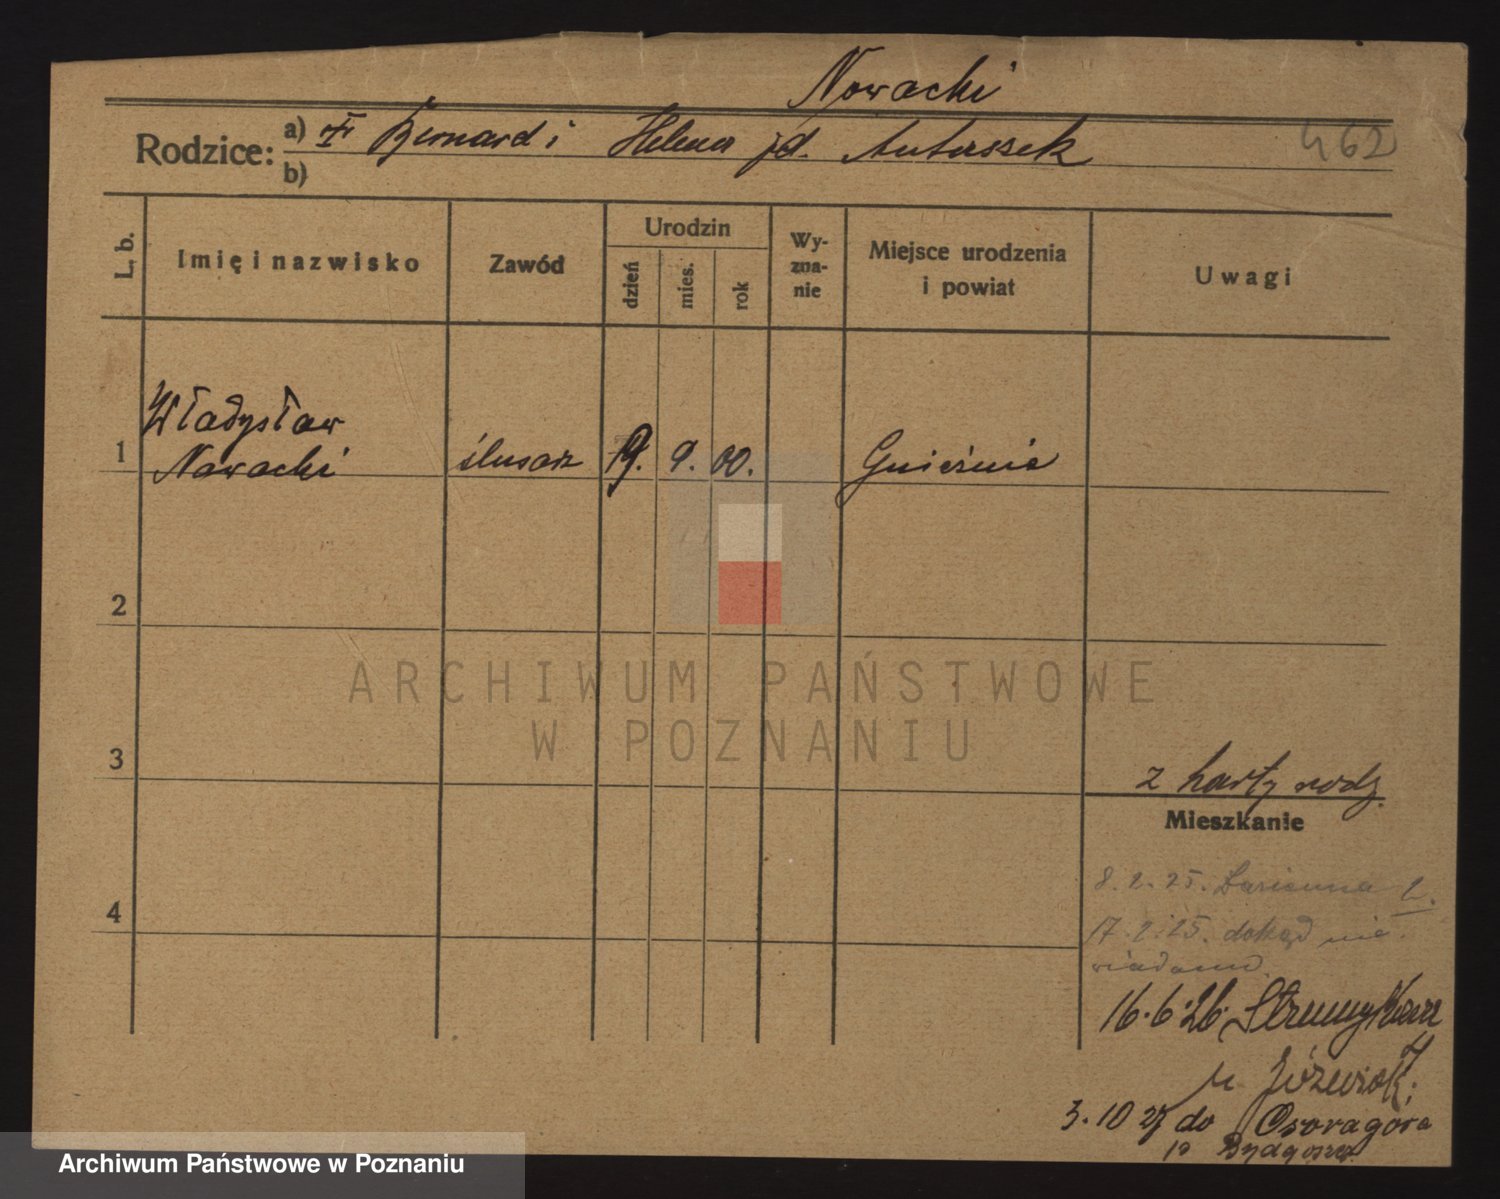 Nowacki
Rodzice: a) Bernard i Helena Antuszek
462
b)
L. b.
Imię i nazwisko
Zawód
Urodzin
dzień
mies.
rok
Wy-
zna-
nie
Miejsce urodzenia
i powiat
Uwagi
Władysław
1 Nowacki ślusarz 19. 9. 00. Gnieźnie
2
ARCHIWUM PAŃSTWOWE
W POZNANIU
3
z karty rodz.
Mieszkanie
4
8. 2. 25. 2.
17. 2. 25. dokąd nie
wiadomo.
16. 6. 26.
u Józwiak;
3. 10 27 do Osowagóra
p Bydgoszcz
Archiwum Państwowe w Poznaniu